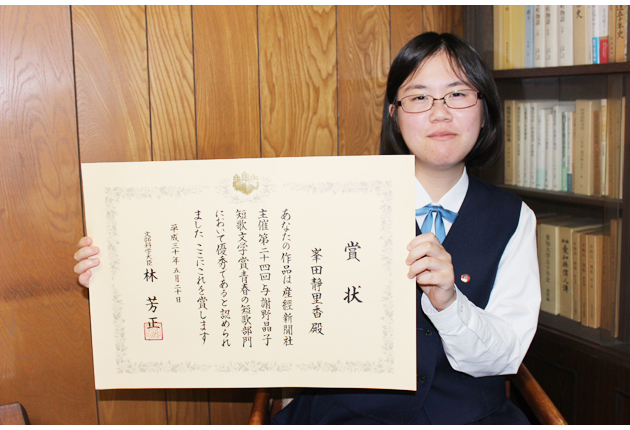 賞状
峯田静里香殿
あなたの作品は産経新聞社
主催第二十四回与謝野晶子
短歌文学賞青春の短歌部門
において優秀であると認められ
ました ここにこれを賞します
平成三十年五月二十日
文部科学大臣 林芳正